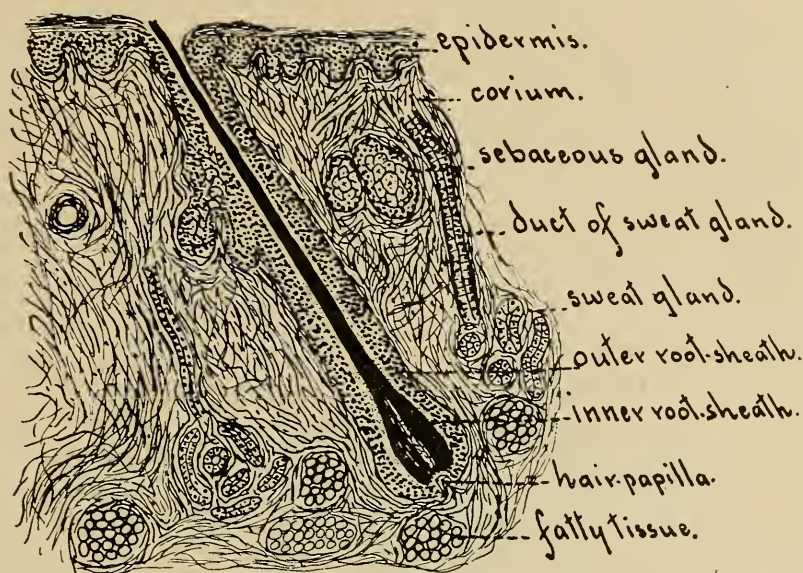 epidermis.
corium.
sebaceous gland.
duct of sweat gland.
sweat gland.
outer root-sheath.
inner root-sheath.
hair-papilla.
fatty tissue.